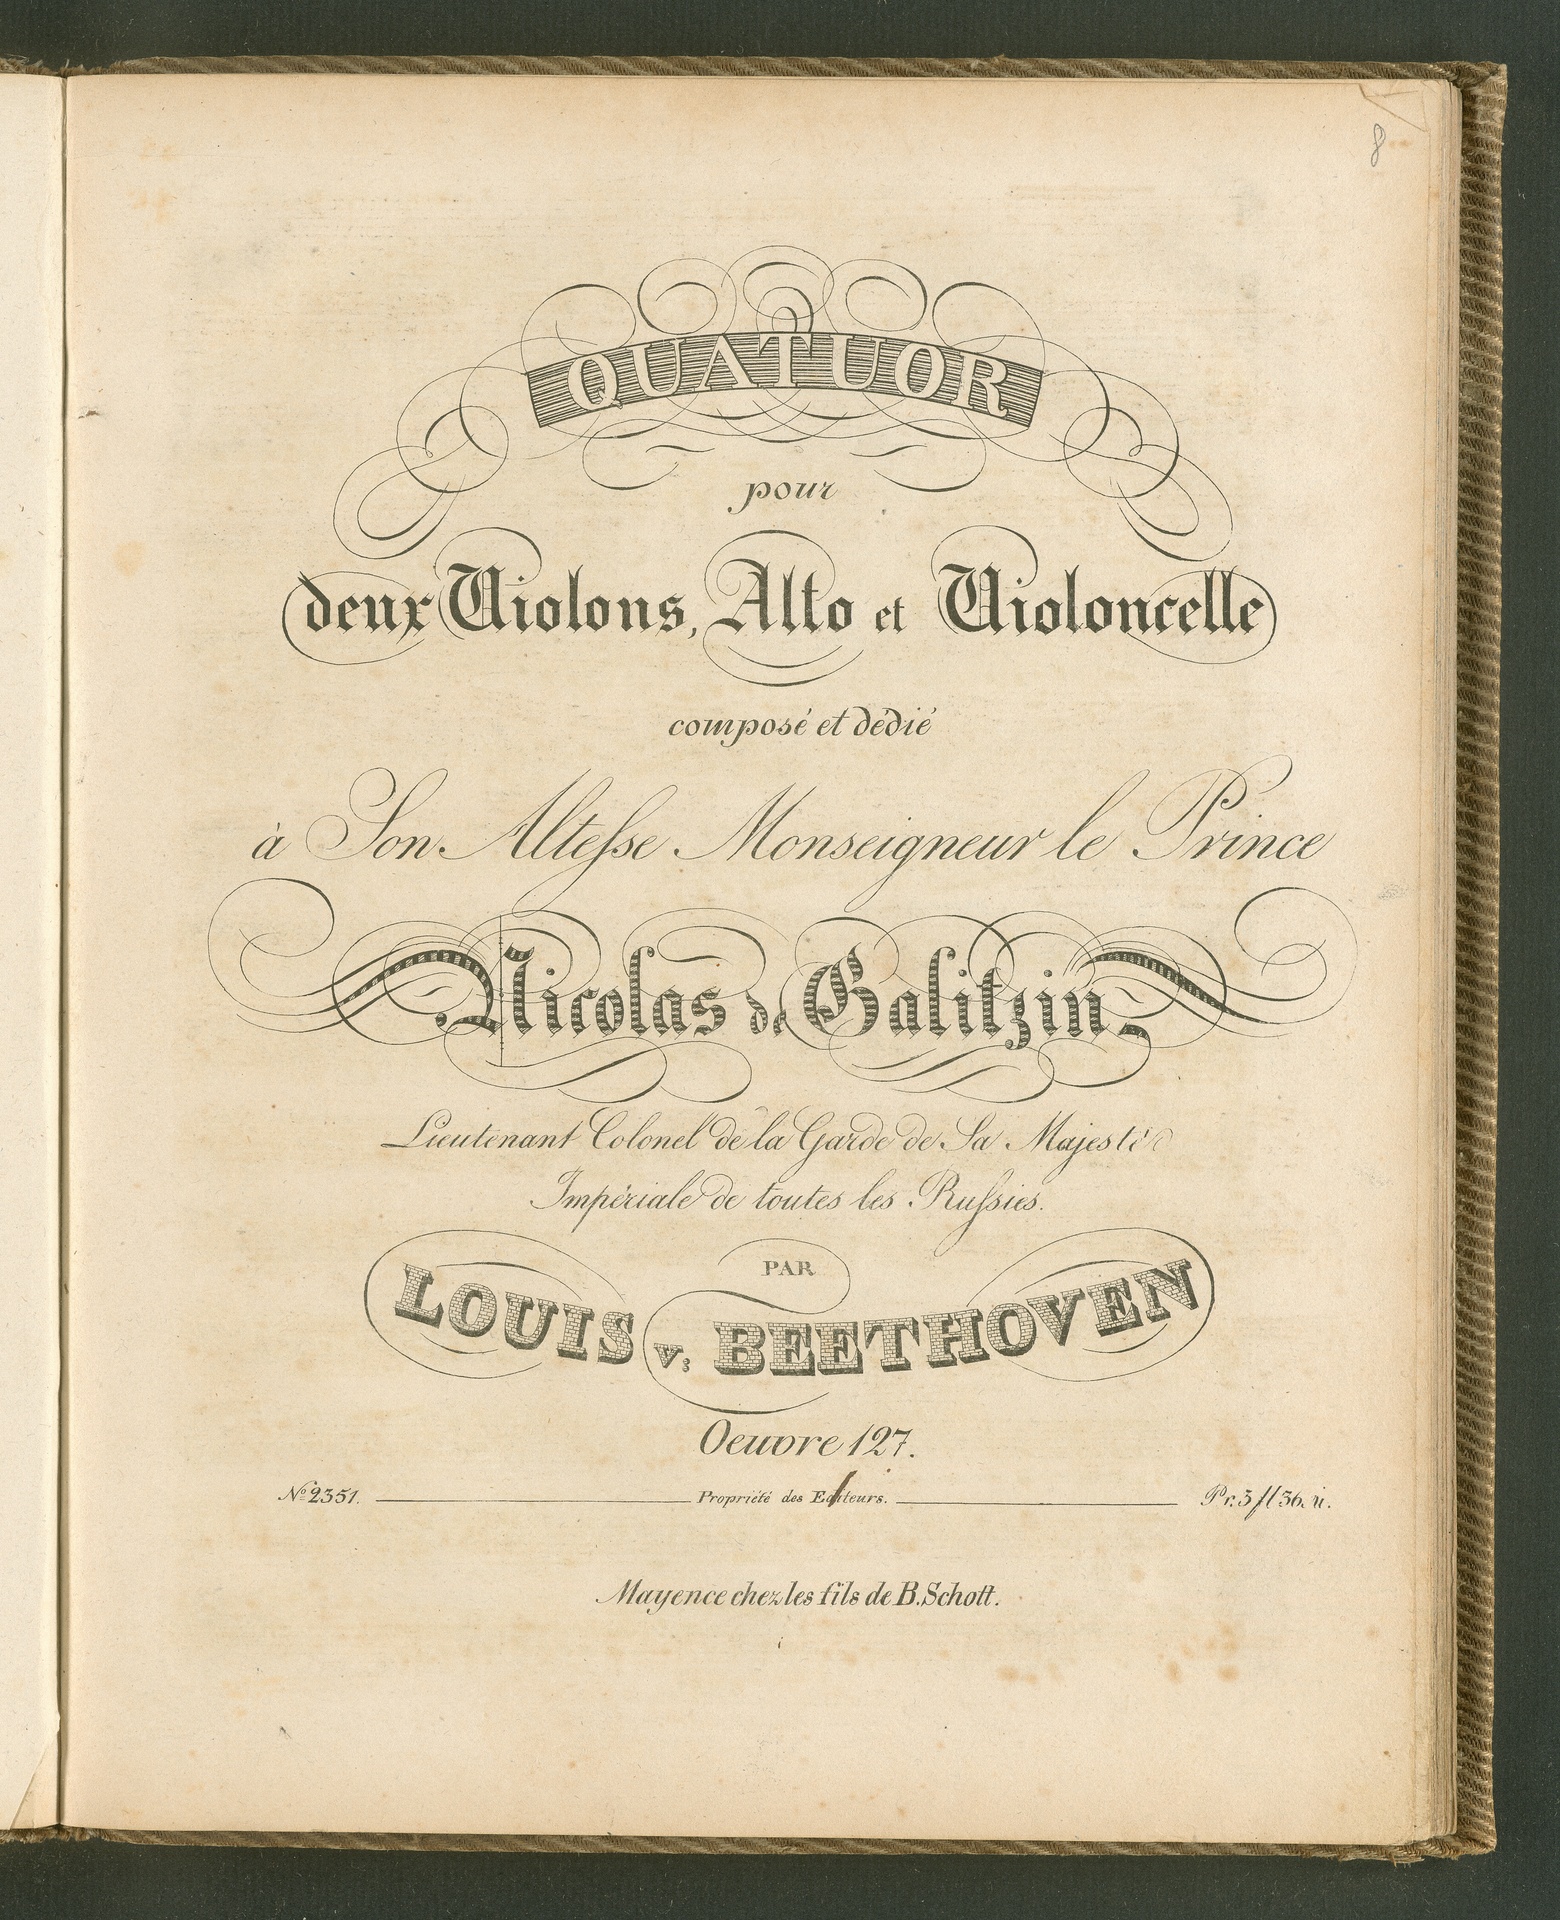 8
QUATUOR
pour
deux Violons, Alto et Violoncelle
composé et dédié
à Son Altesse Monseigneur le Prince
Nicolas de Galitzin
Lieutenant Colonel de la Garde de Sa Majesté
Impériale de toutes les Russies.
PAR
LOUIS v: BEETHOVEN
Oeuvre 127.
No 2351. Propriété des Editeurs. Pr. 3 fl 36
Mayence chez les fils de B. Schott.